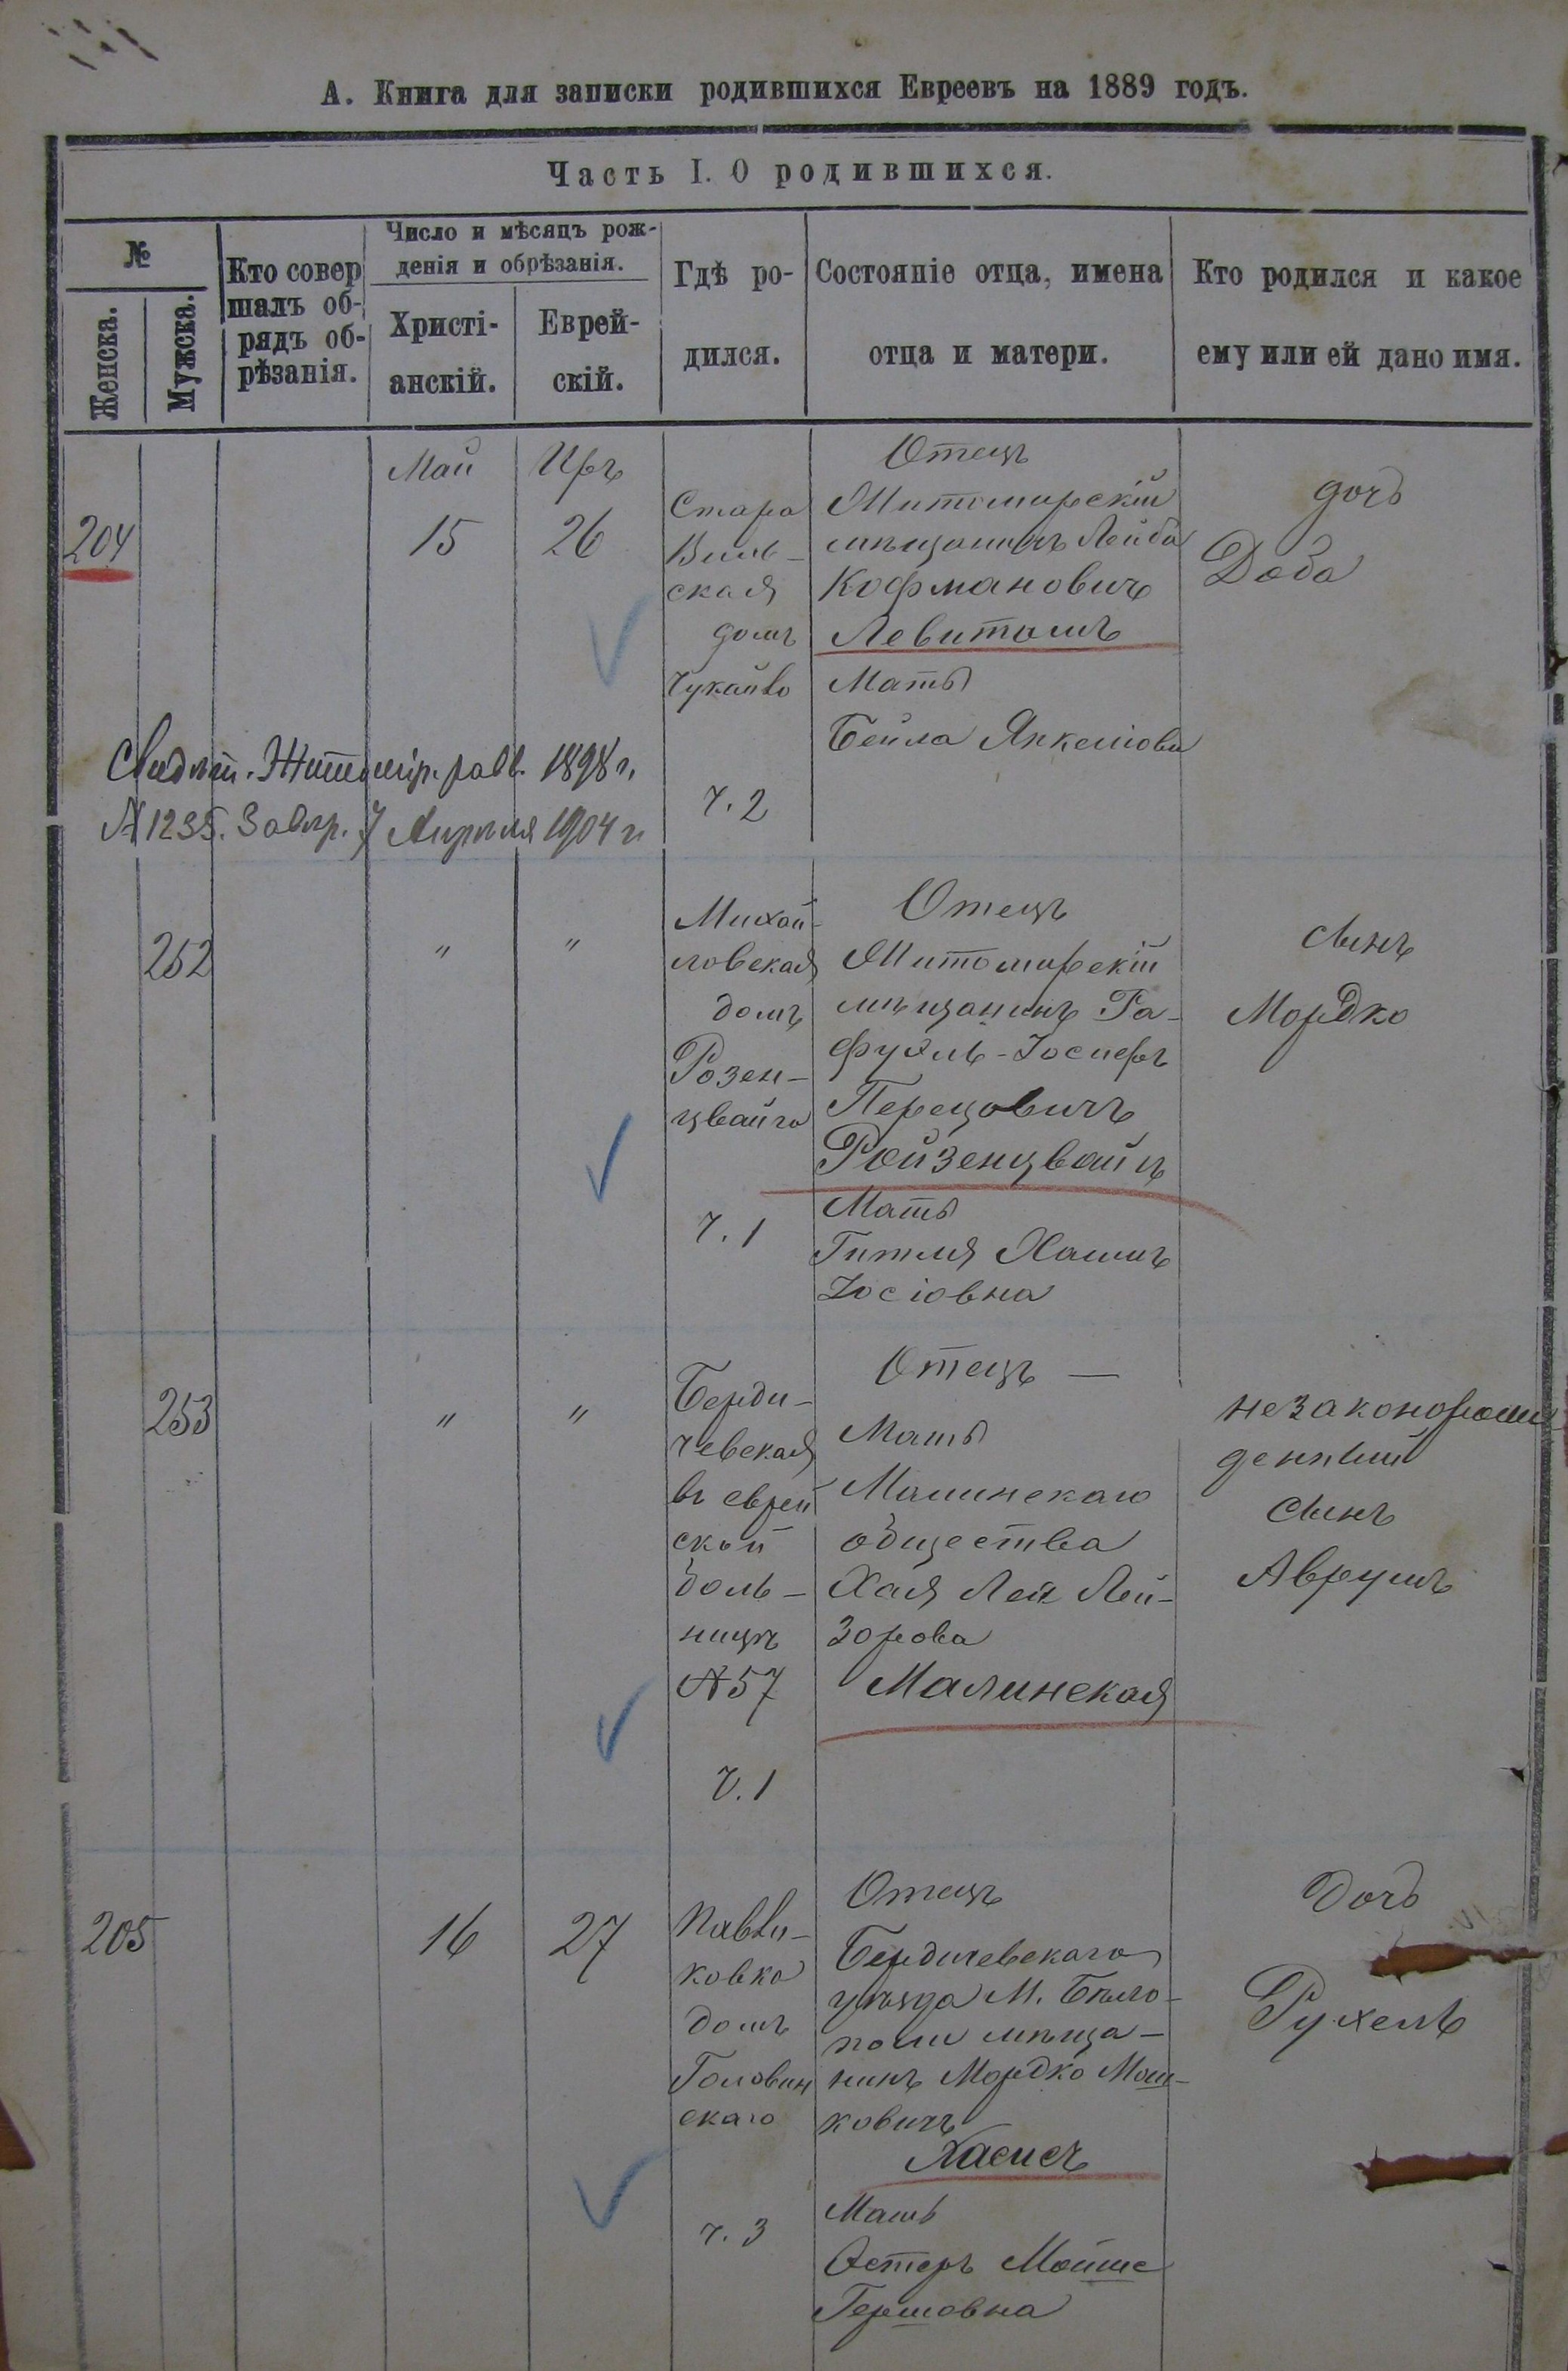 А. Книга для записки родившихся Евреевъ на 1889 годъ.
Часть I. О родившихся.
№
Женска.
Мужска.
Кто совер
шалъ об-
рядъ об-
рѣзанія.
Число и мѣсяцъ рож-
денія и обрѣзанія.
Христі-
анскій.
Еврей-
скій.
Гдѣ ро-
дился.
Состояніе отца, имена
отца и матери.
Кто родился и какое
ему или ей дано имя.
204
Май
15
Иръ
26
Старо
Виль-
ская
домъ
Чукайво
ч. 2
Отецъ
Житомирскій
мѣщанинъ Лейба
Кофмановичъ
Левитанъ
Мать
Бейла Янкеліова
дочь
Доба
Свидѣт. Житомір. равв. 1898 г.
№ 1235. 7 Апрѣля 1904 г.
252
"
"
Михай-
ловская
домъ
Розен-
цвайга
ч. 1
Отецъ
Житомирскій
мѣщанинъ Ра-
фуиль-Іосифъ
Перецовичъ
Ройзенцвайгъ
Мать
Гитля
Іосіовна
сынъ
Мордко
253
"
"
Берди-
чевская
въ еврей
ской
боль-
ницѣ
№ 57
ч. 1
Отецъ —
Мать
Малинскаго
общества
Хая Лея Лей-
зорова
Малинская
незаконорож
денный
сынъ
Аврумъ
205
16
27
Павли-
ковка
домъ
Головин
скаго
ч. 3
Отецъ
Бердичевскаго
уѣзда М. Бѣло-
поли мѣща-
нинъ Мордко Мош-
ковичъ
Хасисъ
Мать
Эстеръ Мойше
Гершовна
дочь
Рухель